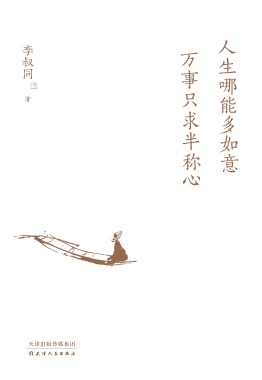 人生哪能多如意
万事只求半称心
李叔同
著
天津出版传媒集团
天津人民出版社